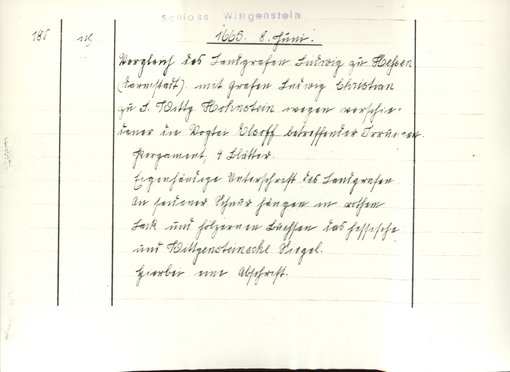 Schloss Wittgenstein
1665. 8. Juni.
Vergleich des Landgrafen Ludwig zu Hessen
(Darmstadt) mit Grafen Ludwig Christian
zu S. Wittg. Hohnstein wegen verschie-
dener die Vogtei Elsoff betreffender Irrungen.
Pergament, 4 Blätter.
Eigenhändige Unterschrift des Landgrafen.
An seidener Schnur hängen in rothem
Lack und hölzernen Büchsen das hessische
und Wittgensteinsche Siegel.
Hierbei eine Abschrift.